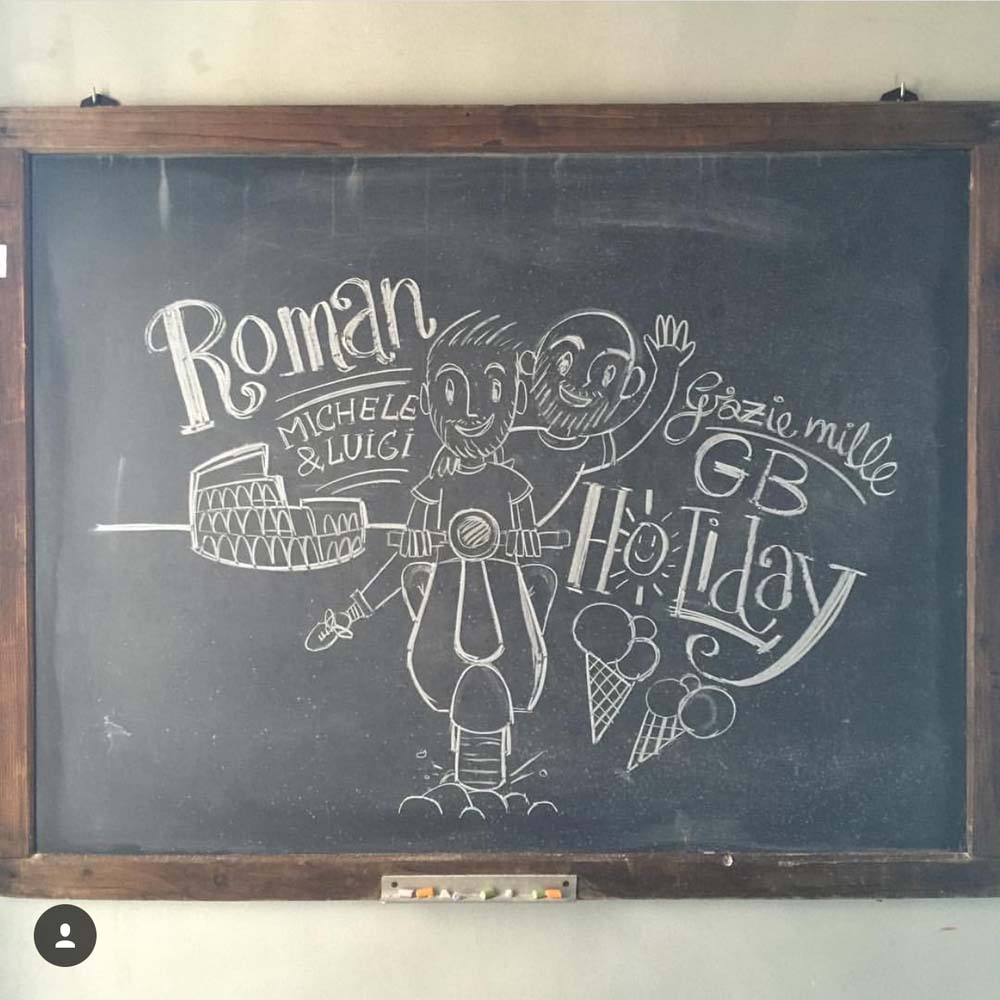 Roman
MICHELE
& LUIGI
Grazie mille
GB
HoLiday